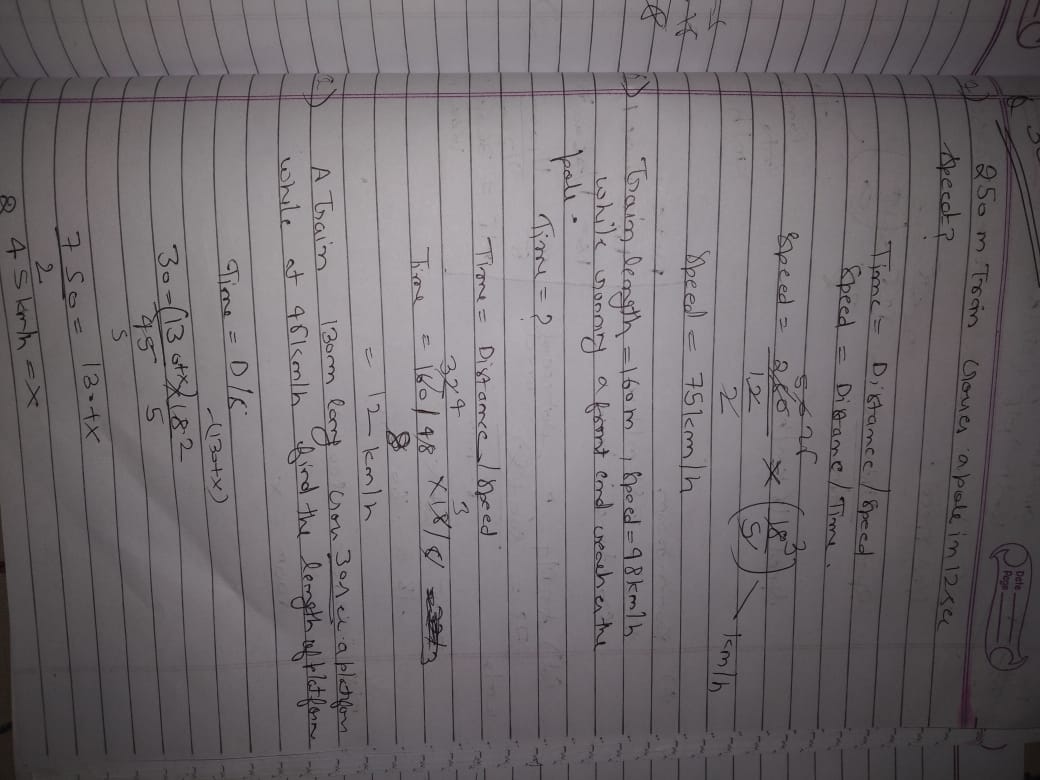 Date
Page
250 m Train crosses a pole in 12 sec
speed?
Time = Distance / Speed
Speed = Distance / Time.
Speed = 250 / 12 × (18 / 5) km/h
Speed = 75 km/h
Train length = 160 m, speed = 48 km/h
while a front end reaches the
pole.
Time = ?
Time = Distance / Speed
Time = 160 / 48 × 18 / 5
= 12 km/h
2) A Train 130m long cross 30 sec a platform
while at 45 km/h find the length of platform
Time = D / S
(130+x)
30 = (130+x) 18 / 45 5
750 / 2 = 130+x
245 km/h = x